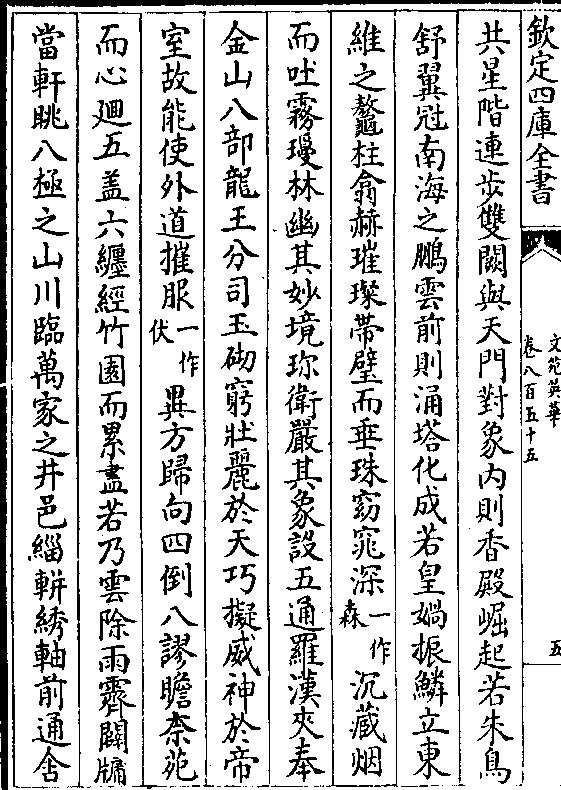 欽定四庫全書
文苑英華
卷八百五十五
五
共星階連步雙闕與天門對象内則香殿崛起若朱鳥
舒翼冠南海之鵬雲前則涌塔化成若皇媧振鱗立東
維之鼇柱翕赫璀璨帶璧而垂珠窈窕深一作森沉藏烟
而吐霧璦林幽其妙境珎衛嚴其象設五通羅漢夾奉
金山八部龍王分司玉砌窮壯麗於天巧擬威神於帝
室故能使外道摧服一作伏異方歸向四倒八謬瞻柰苑
而心廻五盖六纏經竹園而累盡若乃雲除雨霽闢牖
當軒眺八極之山川臨萬家之井邑緇軿綉軸前通舍